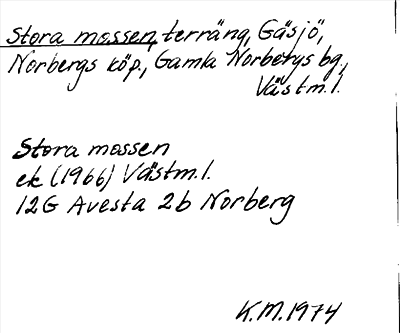 Stora mossen, terräng, Gäsjö,
Norbergs köp., Gamla Norbergs bg.,
Västm.l.
Stora mossen
ek (1966) Västm.l.
12G Avesta 2b Norberg
K.M.1974